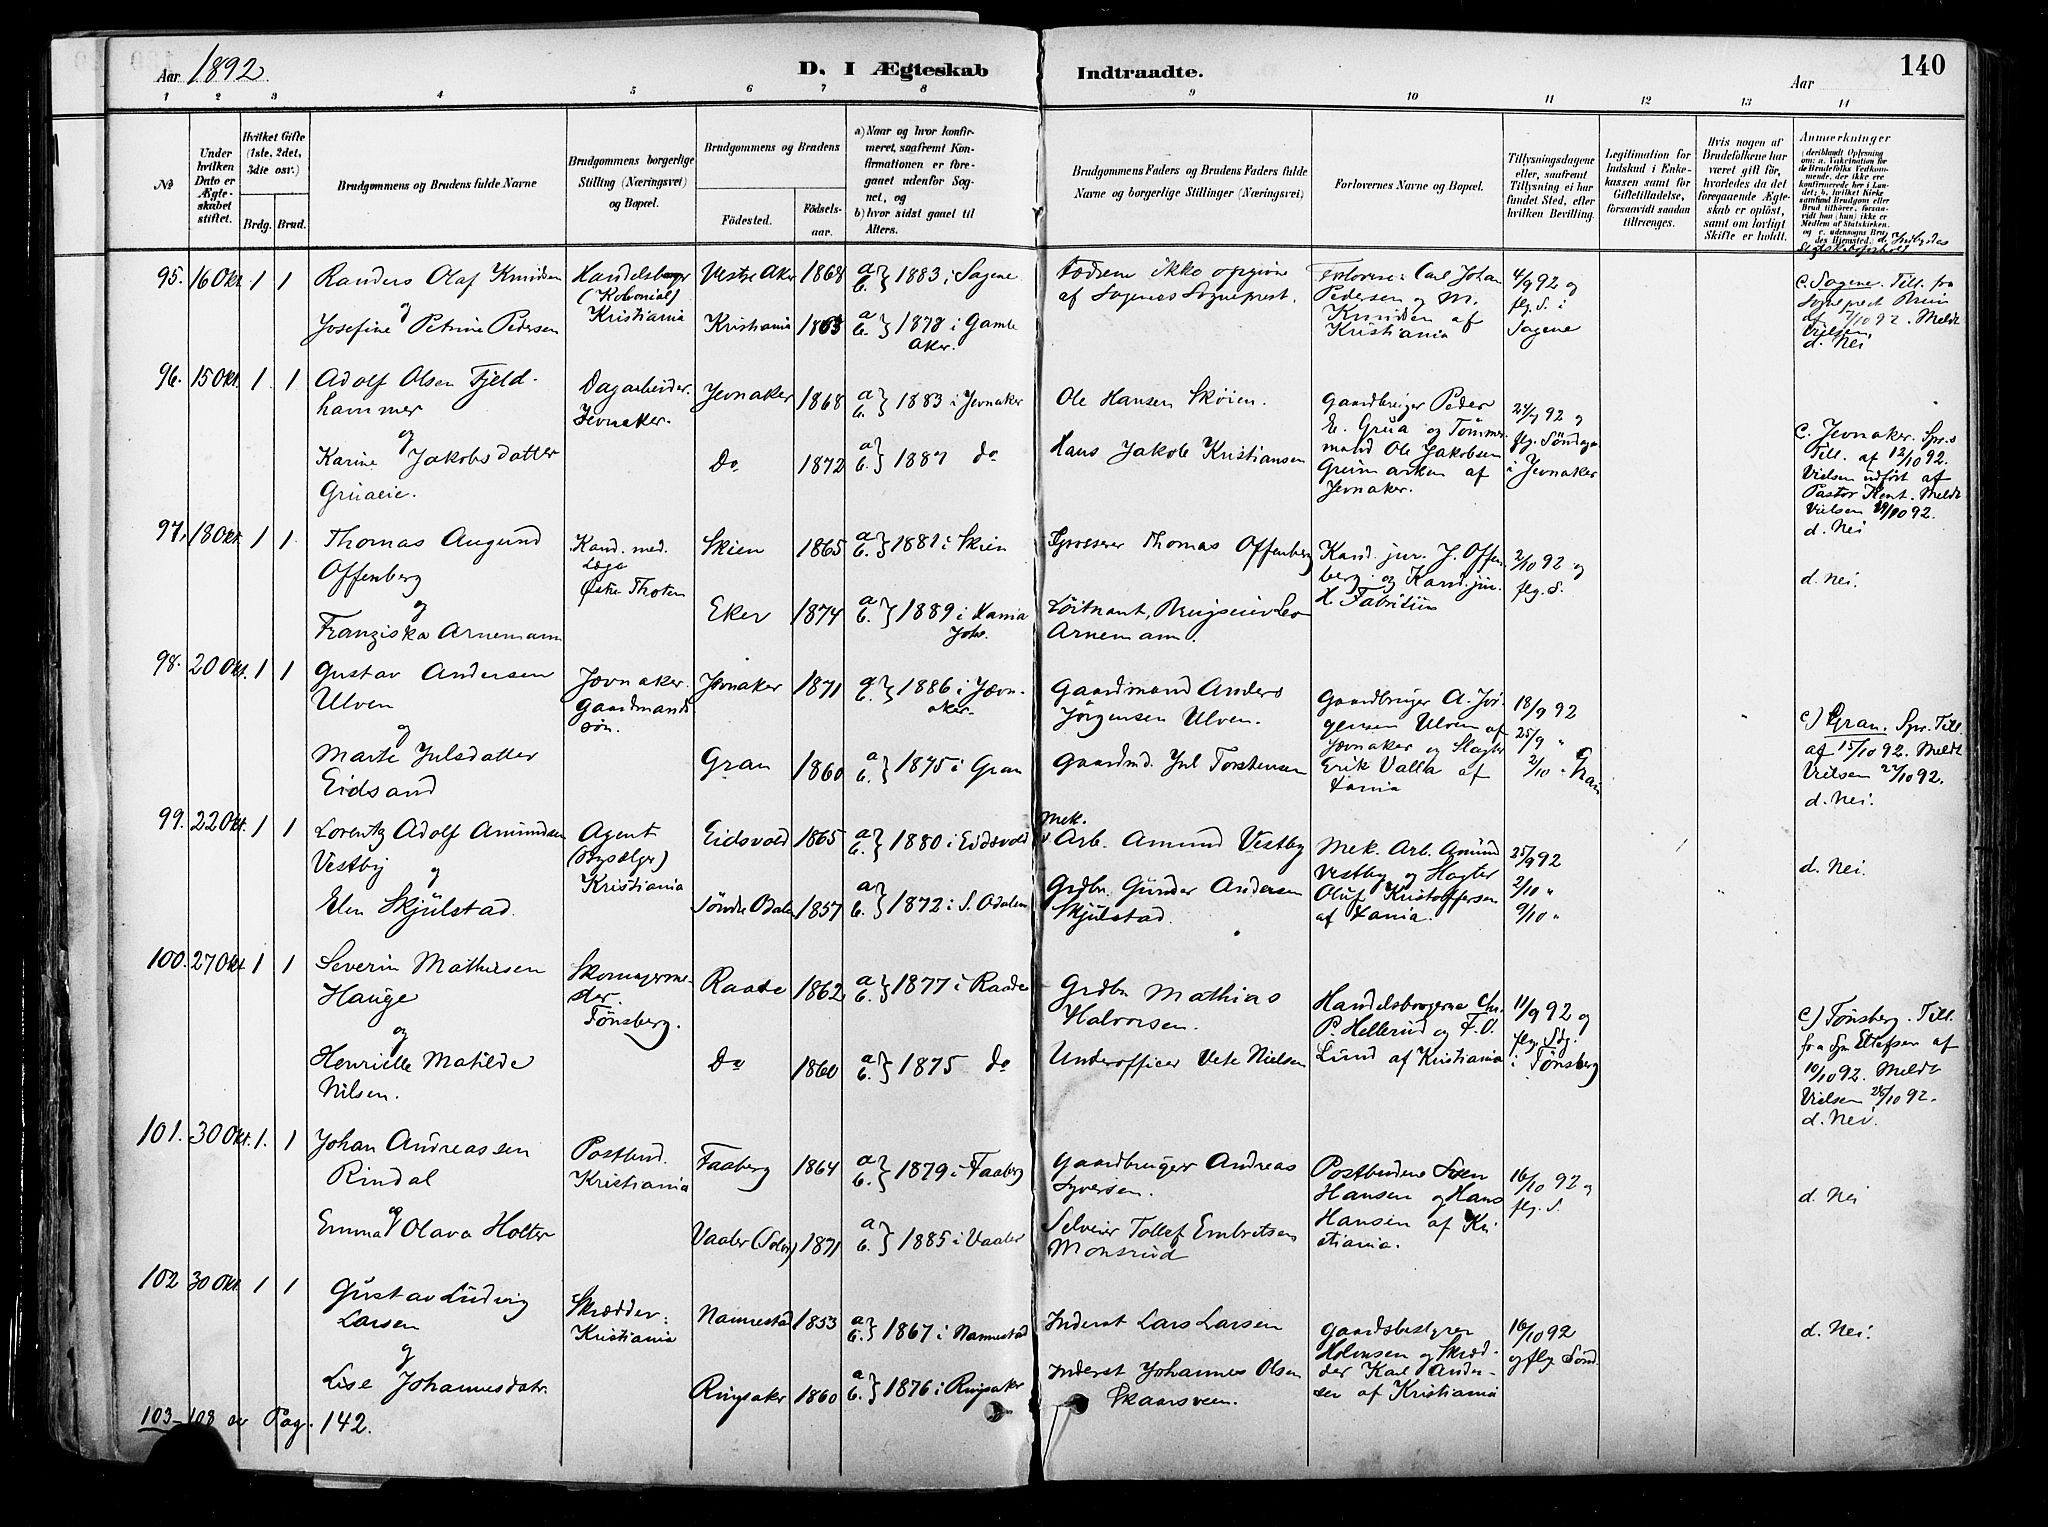 Aar 1892
D. I Ægteskab Indtraadte.
Aar
140
1 2 3 4 5 6 7 8 9 10 11 12 13 14
№
Under hvilken Dato er Ægteskabet stiftet.
Hvilket Gifte (1ste, 2det, 3die osv.)
Brdg. Brud.
Brudgommens og Brudens fulde Navne
Brudgommens borgerlige Stilling (Næringsvei) og Bopæl.
Brudgommens og Brudens
Födested.
Födselsaar.
a) Naar og hvor konfirmeret, saafremt Konfirmationen er foregaaet udenfor Sognet, og
b) hvor sidst gaaet til Alters.
Brudgommens Faders og Brudens Faders fulde Navne og borgerlige Stillinger (Næringsvei)
Forlovernes Navne og Bopæl.
Tillysningsdagene eller, saafremt Tillysning ei har fundet Sted, efter hvilken Bevilling.
Legitimation for Indskud i Enkekassen samt for Giftetilladelse, forsaavidt saadan tiltrænges.
Hvis nogen af Brudefolkene har været gift för, hvorledes da det foregaaende Ægteskab er oplöst, samt om lovligt Skifte er holdt.
Anmærkninger
(deriblandt Oplysning om: a. Vakcination for de Brudefolks Vedkommende, der ikke ere konfirmerede her i Landet; b. hvilket Kirkesamfund Brudgom eller Brud tilhörer, forsaavidt han (hun) ikke er Medlem af Statskirken, og c. udensogns Brudes Hjemsted.)
95. 16 Okt. 1 1
Randers Olaf Knudsen
og
Josefine Petrine Pedersen
Handelsborger
(Kolonial)
Kristiania
Vestre Aker 1868 a b } 1883 i Sagene
Kristiania 1863 a b } 1878 i Gamle
Aker.
Fædrene ikke opgivne
af Sagenes Sogneprest.
Forlovere: Carl Johan
Pedersen og M.
Knudsen af
Kristiania
4/9 92 og
flg. S. i
Sagene
c. Sagene. Till. fra
Sogneprest
af 7/10 92. Meldt
Vielsen.
d. Nei
96. 15 Okt. 1 1
Adolf Olsen Fjeld-
hammer
og
Karine Jakobsdatter
Gruaeie.
Dagarbeider.
Jevnaker.
Jevnaker 1868 a b } 1883 i Jevnaker
Do 1872 a b } 1887 do
Ole Hansen Sköien.
Hans Jakob Kristiansen
Gaardbruger Peder
E. Grua og Tömmer-
mand Ole Jakobsen
af
Jevnaker.
92 og
flg. Söndage
i Jevnaker
c. Jevnaker. Spr.s
Till. af 12/10 92.
Vielsen udfört af
Pastor Kent. Meldt
Vielsen 92.
d. Nei
97. 18 Okt. 1 1
Thomas Augund
Offenberg
og
Franziska Arnemann
Kand. med.
Læge
Östre Thoten
Skien 1865 a b } 1881 i Skien
Eker 1874 a b } 1889 i Xania
Johs.
Grosserer Thomas Offenberg
Löitnant, Arnemann.
Kand. jur. J. Offen-
berg og Kand. jur.
H. Fabritius
2/10 92 og
flg. S.
d. nei.
98. 20 Okt. 1 1
Gustav Andersen
Ulven
og
Marte Julsdatter
Eidsand
Jævnaker.
Gaardmands-
sön.
Jævnaker 1871 a b } 1886 i Jævn-
aker.
Gran 1860 a b } 1875 i Gran
Gaardmand Anders
Jörgensen Ulven.
Gaardmd. Jul Torstensen
Gaardbruger A. Jör-
gensen Ulven af
Jævnaker og Slagter
Erik Valla af
Xania
18/9 92
25/9 "
2/10 " Gran
c) Gran. Spr. Till.
af 15/10 92. Meldt
Vielsen 22/10 92.
d. Nei.
99. 22 Okt. 1 1
Lorentz Adolf Amundsen
Vestby
og
Elen Skjülstad.
Agent
(Bysælger)
Kristiania
Eidsvold 1865 a b } 1880 i Eidsvold
Söndre Odalen 1857 a b } 1872 i S. Odalen
Mek.
Arb. Amund Vestby
Grdbr. Gunder Andersen
Skjülstad.
Mek. Arb. Amund
Vestby og
Oluf Kristoffersen
af Xania.
25/9 92
2/10 "
9/10 "
d. Nei.
100. 27 Okt. 1 1
Severin Mathisen
Hauge
og
Henriette Matilde
Nilsen.
Skomagerme-
ster.
Tönsberg.
Raade 1862 a b } 1877 i Raade
Do 1860 a b } 1875 do
Grdbr. Mathias
Halvorsen.
Underofficer Nielsen
Handelsborgerne Chr.
P. Hellerud og F. O.
Lund af Kristiania
11/9 92 og
flg. Sdg.
i Tönsberg
c) Tönsberg. Till.
fra af
10/10 92. Meldt
Vielsen 28/10 92.
d. Nei.
101. 30 Okt. 1. 1
Johan Andreassen
Rindal
og
Emma Olava Holter
Postbud.
Kristiania
Faaberg 1864 a b } 1879 i Faaberg
Vaaler (Solör) 1871 a b } 1885 i Vaaler
Gaardbruger Andreas
Syversen.
Selveier Tollef Embretsen
Monsrud
Postbudene Sven
Hansen og Hans
Hansen af Kri-
stiania.
16/10 92 og
flg. S.
d. Nei
102 30 Okt. 1 1
Gustav Ludvig
Larsen
og
Lise Johannesdatr.
Skrædder.
Kristiania
Nannestad 1853 a b } 1867 i Nannestad
Ringsaker 1860 a b } 1876 i Ringsaker
Inderst Lars Larsen
Inderst Johannes Olsen
Skaarsveen.
Gaardsbestyrer
og Skræd-
der Karl Ander-
sen af Kristiania
16/10 92
og flg. Sönd.
d. Nei.
103-108 se Pag. 142.